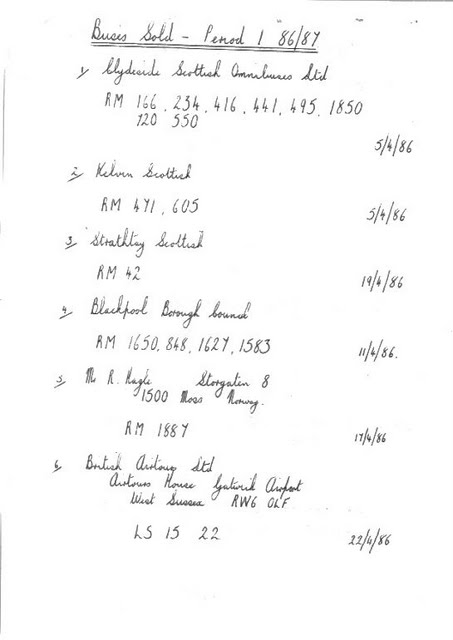 Buses Sold - Period 1 86/87
1/ Clydeside Scottish Omnibuses Ltd
RM 166, 234, 416, 441, 495, 1850
120 550
5/4/86
2/ Kelvin Scottish
RM 471, 605
5/4/86
3/ Strathtay Scottish
RM 42
19/4/86
4/ Blackpool Borough Council
RM 1650, 848, 1627, 1583
11/4/86.
5/ Mr R. Storgaten 8
1500 Moss Norway.
RM 1887
17/4/86
6/ British Airtours Ltd
Airtours House Gatwick Airport
West Sussex RW6 OLF
LS 15 22
22/4/86